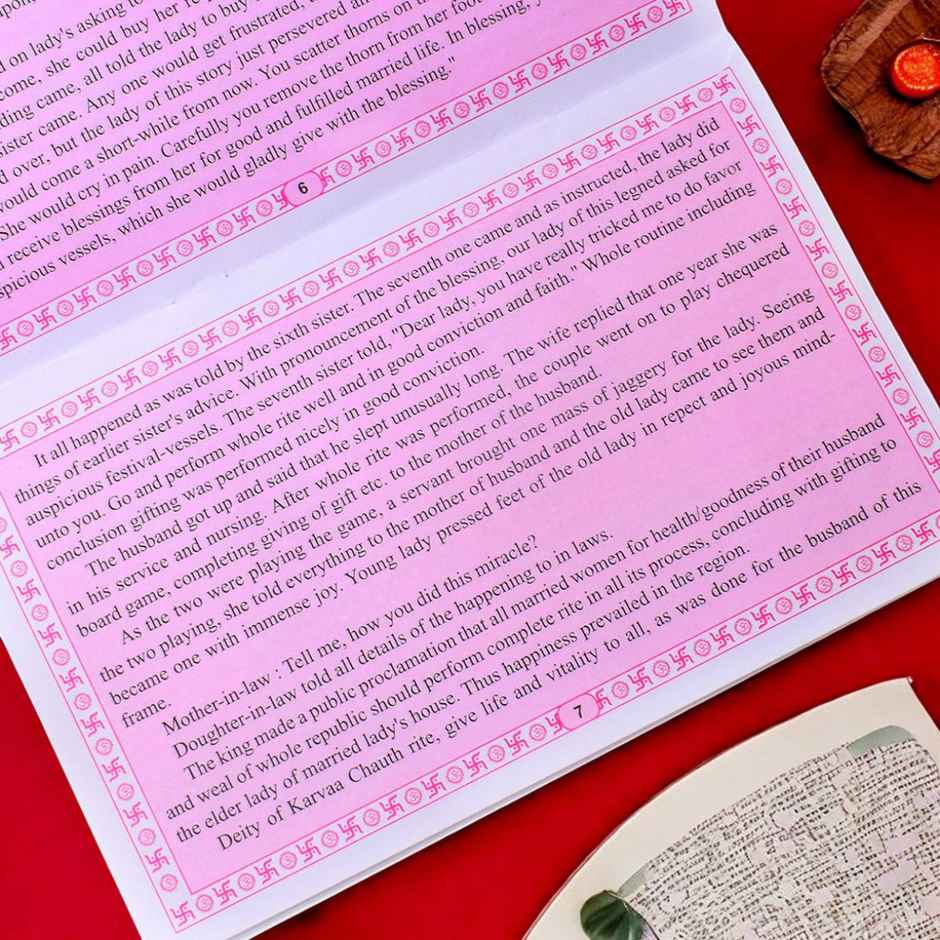 d on lady's asking to
come, she could buy her
ding came, all told the lady to buy
sister came. Any one would get frustrated,
d over, but the lady of this story just persevered
would come a short-while from now. You scatter thorns on
She would cry in pain. Carefully you remove the thorn from her foo
l receive blessings from her for good and fulfilled married life. In blessing,
spicious vessels, which she would gladly give with the blessing."
6
It all happened as was told by the sixth sister. The seventh one came and as instructed, the lady did
things of earlier sister's advice. With pronouncement of the blessing, our lady of this legned asked for
auspicious festival-vessels. The seventh sister told. "Dear lady, you have really tricked me to do favor
unto you. Go and perform whole rite well and in good conviction and faith." Whole routine including
conclusion gifting was performed nicely in good conviction.
The husband got up and said that he slept unusually long. The wife replied that one year she was
in his service and nursing. After whole rite was performed, the couple went on to play chequered
board game, completing giving of gift etc. to the mother of the husband.
As the two were playing the game, a servant brought one mass of jaggery for the lady. Seeing
the two playing, she told everything to the mother of husband and the old lady came to see them and
became one with immense joy. Young lady pressed feet of the old lady in repect and joyous mind-
frame.
Mother-in-law : Tell me, how you did this miracle?
Doughter-in-law told all details of the happening to in laws.
The king made a public proclamation that all married women for health/goodness of their husband
and weal of whole republic should perform complete rite in all its process, concluding with gifting to
the elder lady of married lady's house. Thus happiness prevailed in the region.
Deity of Karvaa Chauth rite, give life and vitality to all, as was done for the busband of this
7